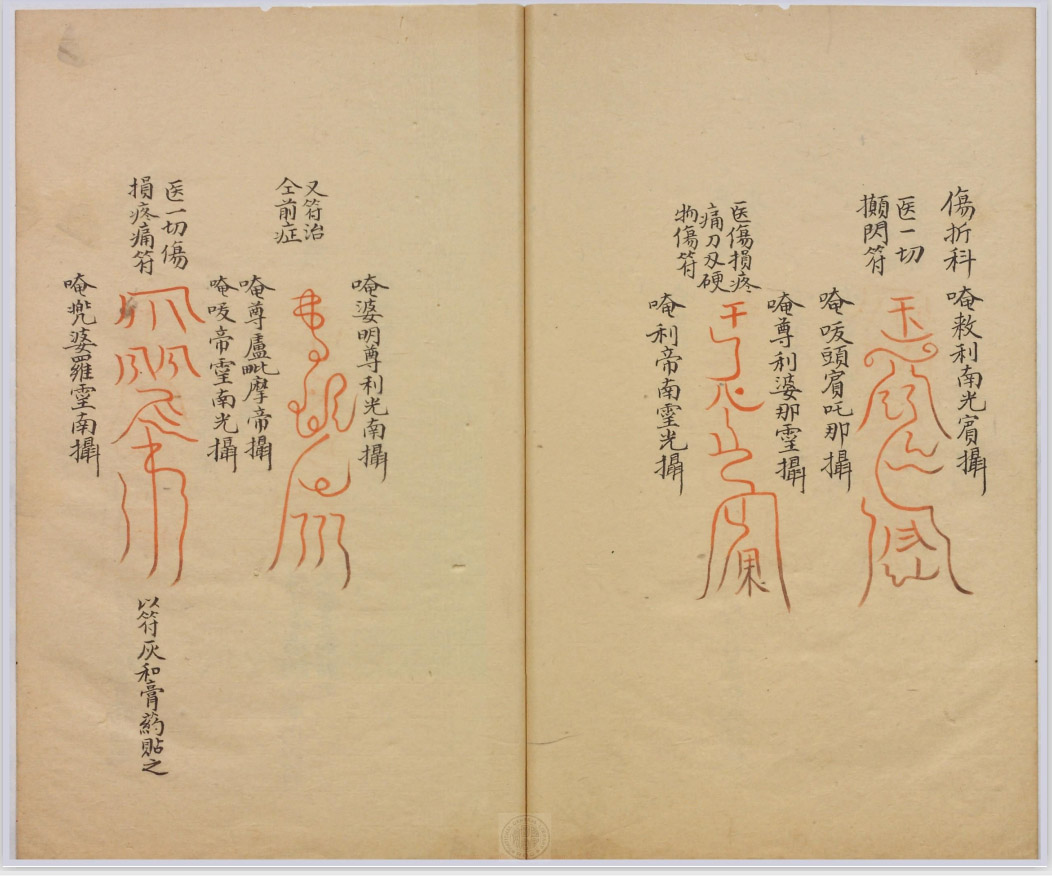 傷折科
医一切
攧閃符
唵敕利南光賔攝
唵吱頭賔吒那攝
医傷損疼
痛刀刄硬
物傷符
唵尊利婆那霊攝
唵利帝南霊光攝
又符治
仝前症
唵婆明尊利光南攝
唵尊盧毗摩帝攝
唵吱帝霊南光攝
医一切傷
損疼痛符
唵兜婆羅霊南攝
以符灰和膏葯貼之